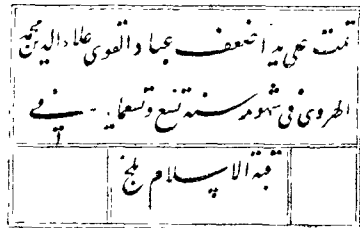 تمت على يد اضعف عباد القوى علاء الدين محمد
الهروى فى شهور سنة تسع وتسعمايه فى
قبة الاسلام بلخ